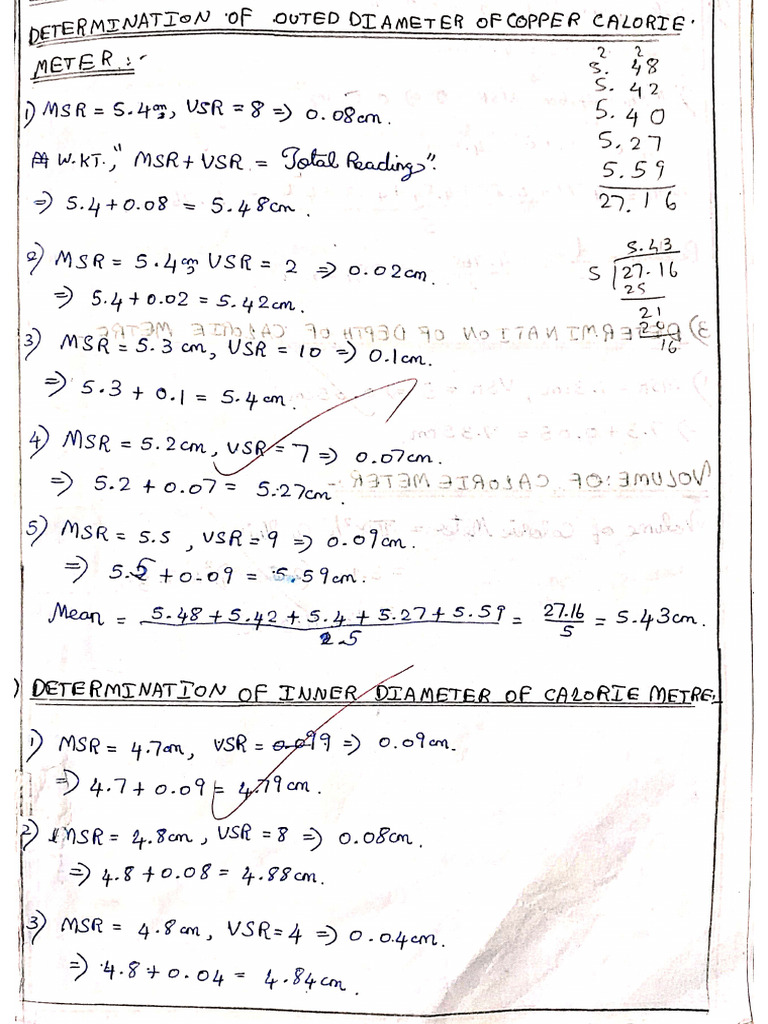 DETERMINATION OF OUTED DIAMETER OF COPPER CALORIE-
METER :-
1) MSR = 5.4cm, VSR = 8 => 0.08cm.
W.KT, "MSR + VSR = Total Reading".
=> 5.4+0.08 = 5.48cm.
2) MSR = 5.4cm, VSR = 2 => 0.02cm.
=> 5.4+0.02 = 5.42cm.
3) MSR = 5.3 cm, VSR = 10 => 0.1cm.
=> 5.3 + 0.1 = 5.4 cm.
4) MSR = 5.2cm, VSR = 7 => 0.07cm.
=> 5.2 + 0.07 = 5.27cm.
5) MSR = 5.5 , VSR = 9 => 0.09cm.
=> 5.5 + 0.09 = 5.59cm.
Mean = 5.48 + 5.42 + 5.4 + 5.27 + 5.59 / 5 = 27.16 / 5 = 5.43cm.
2 2
5. 48
5. 42
5. 40
5. 27
5. 59
27. 16
5.43
5 27.16
25
21
20
16
) DETERMINATION OF INNER DIAMETER OF CALORIE METRE.
1) MSR = 4.7cm, VSR = 9 => 0.09cm.
=> 4.7 + 0.09 = 4.79cm.
2) MSR = 4.8cm, VSR = 8 => 0.08cm.
=> 4.8 + 0.08 = 4.88cm.
3) MSR = 4.8cm, VSR = 4 => 0.04cm.
=> 4.8 + 0.04 = 4.84cm.